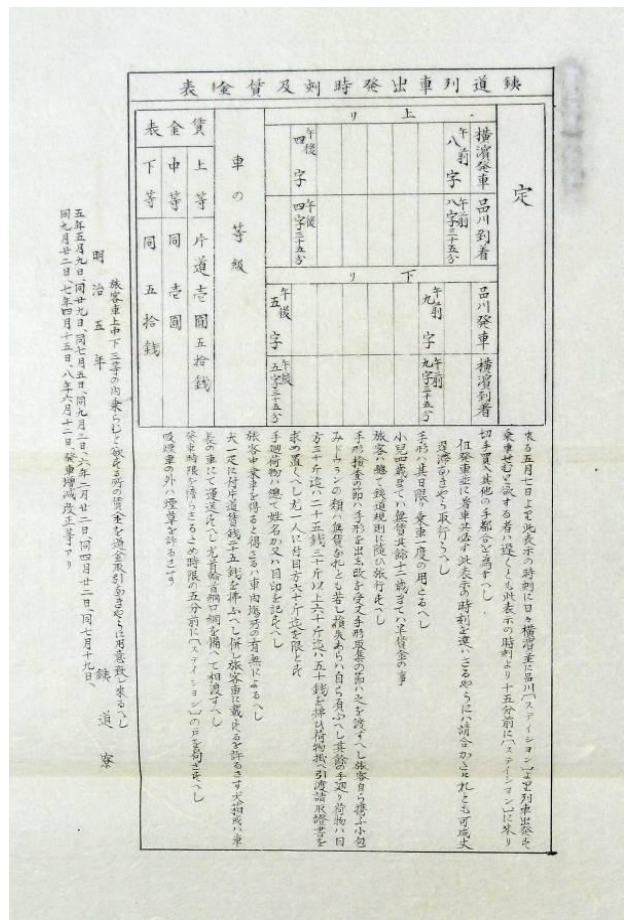 鉄道列車出発時刻及賃金表
定
上リ
横濱発車
午前八字
午後四字
品川到着
午前八字三十五分
午後四字三十五分
下リ
品川発車
午前九字
午後五字
横濱到着
午前九字三十五分
午後五字三十五分
車の等級
賃金表
上等 片道壱圓五拾銭
中等 同 壱圓
下等 同 五拾銭
来る五月七日より此表示の時刻に日々横濱並に品川「ステイション」より列車出発す
乗車せむと欲する者ハ遅くとも此表示の時刻より十五分前に「ステイション」に来り
切手買入其他の手都合を為すへし
但発車並に着車共必す此表示の時刻を違ハさるやうにハ請合かたけれとも可成丈
遅滞なきやう取行ふへし
手形ハ其日限り乗車一度の用たるへし
小児四歳まてハ無賃其餘十二歳まてハ半賃金の事
旅客ハ總て鉄道規則に随ひ旅行すへし
手形検査の節ハ手形を出し改を受又手形取集の節ハ之を渡すへし旅客自ら携ふ小包
みトウランの類ハ無賃なれとも若し損失あらハ自ら負ふへし其餘の手廻り荷物ハ目
方三十斤迄ハ二十五銭三十斤以上六十斤迄ハ五十銭を拂ひ荷物掛へ引渡請取證書を
求め置くへし尤一人に付目方六十斤迄を限とす
手廻荷物ハ總て姓名か又ハ目印を記すへし
旅客中乗車を得ると得さるハ車内場所の有無によるへし
犬一疋に付片道賃銭二十五銭を拂ふへし併し旅客車に載するを許るさす犬箱或ハ車
長の車にて運送すへし尤首輪首綱口綱を備へて相渡すへし
発車時限を惰らさるため時限の五分前に「ステイション」の戸を閉さすへし
吸煙車の外ハ煙草を許るさす
旅客車上中下三等の内乗らむと欲する所の賃金を過金取引なきやうに用意致し来るへし
明治五年 鉄道寮
五年五月九日、同廿九日、同七月五日、同九月二日、六年二月廿二日、同四月廿二日、同七月十九日、
同九月廿二日、七年四月十五日、八年六月十二日発車増減改正等アリ